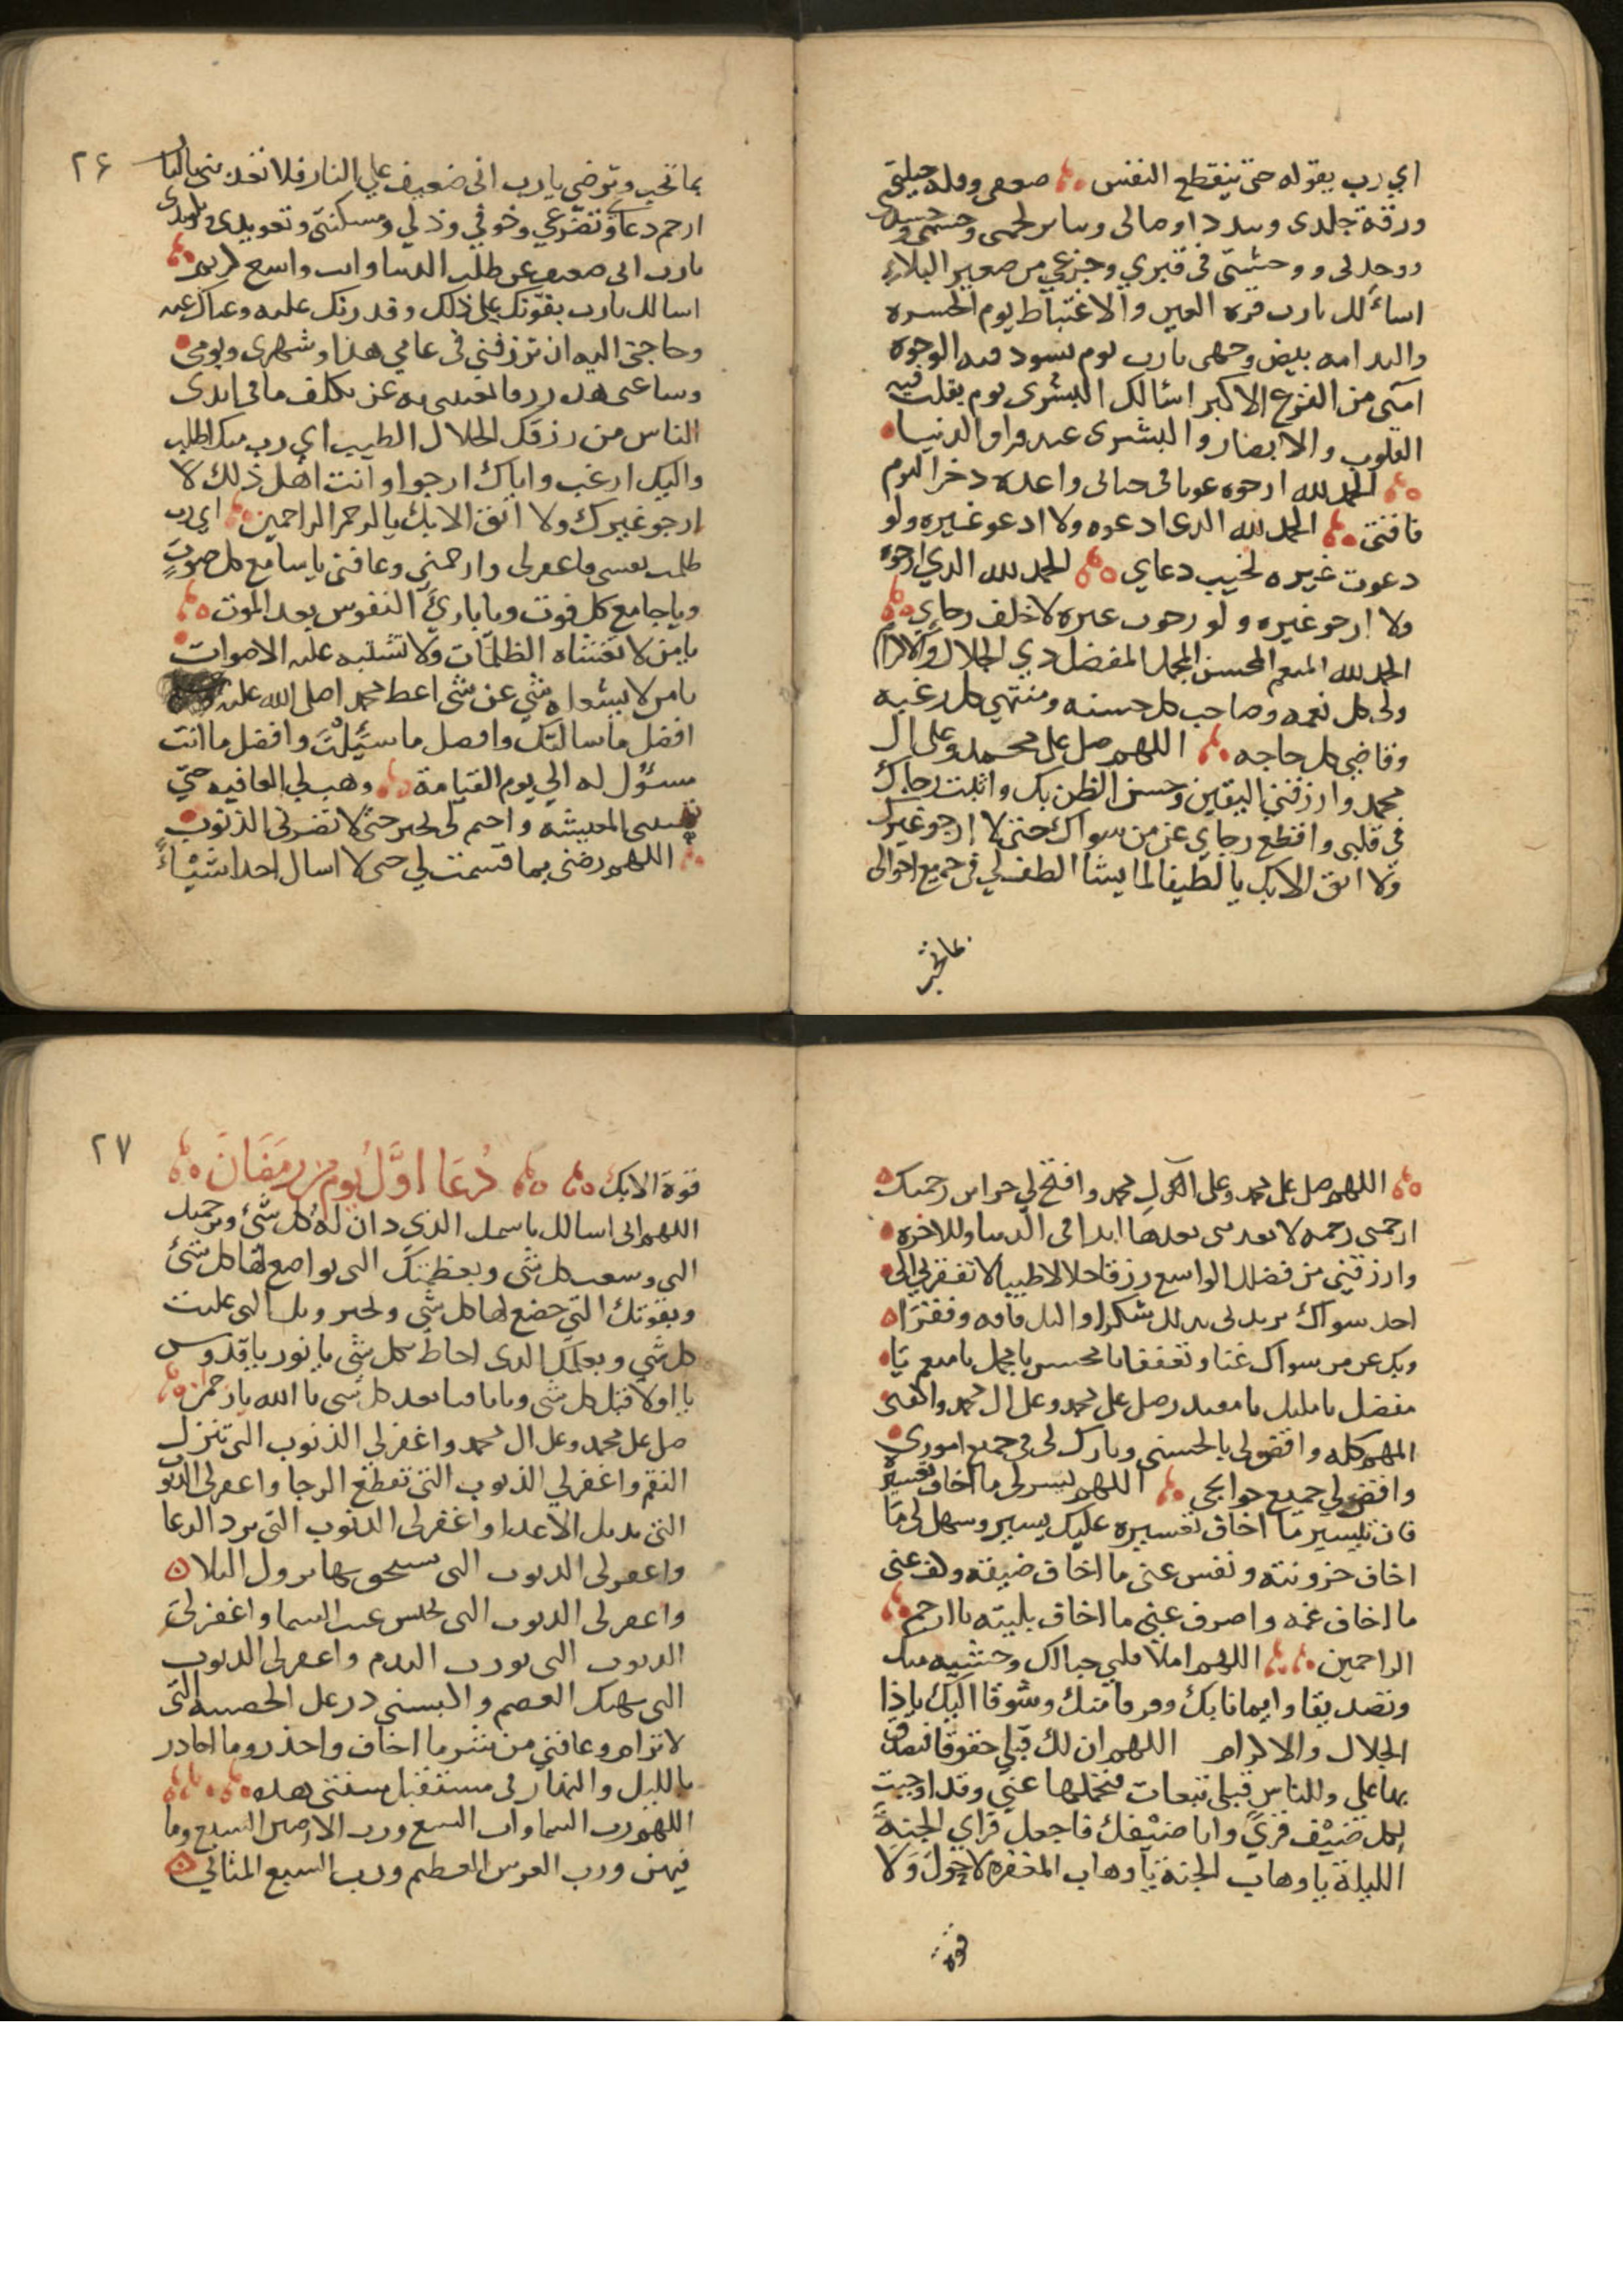 اي رب بقوله حتى ينقطع النفس ضعفي وقلة حيلتي
ورقة جلدي وتبدد اوصالي وتناثر لحمي وجسمي وجسدي
ووحدتي ووحشتي في قبري وجزعي من صغير البلاء
اسالك يارب قرة العين والاغتباط يوم الحسرة
والندامه بيض وجهي يارب يوم تسود فيه الوجوه
امني من الفزع الاكبر اسالك البشرى يوم تقلب فيه
القلوب والابصار والبشرى عند فراق الدنيا
الحمد لله ارجوه عونا في حياتي واعده ذخرا ليوم
فاقتي الحمد لله الذي ادعوه ولا ادعو غيره ولو
دعوت غيره لخيب دعاي الحمد لله الذي ارجوه
ولا ارجو غيره ولو رجوت غيره لاخلف رجاي
الحمد لله المنعم المحسن المجمل المفضل ذي الجلال والاكرام
ولى كل نعمه وصاحب كل حسنه ومنتهى كل رغبه
وقاضي كل حاجه اللهم صل على محمد وعلى ال
محمد وارزقني اليقين وحسن الظن بك واثبت رجاك
في قلبي واقطع رجاي عن من سواك حتى لا ارجو غيرك
ولا اثق الا بك يا لطيفا لما يشا الطف لي في جميع احوالي
بما تحب
٢٦
بما تحب وترضى يارب اني ضعيف على النار فلا تعذبني بالنار
ارحم دعاي وتضرعي وخوفي وذلي ومسكنتي وتعويذي وتلويذي
يارب اني ضعيف عن طلب الدنيا وانت واسع كريم
اسالك يارب بقوتك على ذلك وقدرتك عليه وغناك عنه
وحاجتي اليه ان ترزقني في عامي هذا وشهري ويومي
وساعتي هذه رزقا تغنيني به عن تكلف ما في ايدي
الناس من رزقك الحلال الطيب اي رب منك اطلب
واليك ارغب واياك ارجوا وانت اهل ذلك لا
ارجو غيرك ولا اثق الا بك يا ارحم الراحمين اي رب
ظلمت نفسي فاغفر لي وارحمني وعافني يا سامع كل صوت
ويا جامع كل فوت ويا بارئ النفوس بعد الموت
يا من لا تغشاه الظلمات ولا تشتبه عليه الاصوات
يا من لا يشغله شي عن شي اعط محمد اصلى الله عليه
افضل ما سالك وافضل ما سئلت وافضل ما انت
مسؤل له الي يوم القيامة وهب لي العافيه حتي
تهنيني المعيشه واختم لي بخير حتى لا تضرني الذنوب
اللهم رضني بما قسمت لي حتى لا اسال احدا شيئاً
اللهم صل على محمد وعلى ال محمد وافتح لي خزاين رحمتك
ارحمني رحمه لا تعذبني بعدها ابدا في الدنيا وللاخره
وارزقني من فضلك الواسع رزقا حلالا طيبا لا تفقرني الى
احد سواك تزيدني بذلك شكرا واليك فاقه وفقرا
وبك عن من سواك غنا وتعففا يا محسن يا مجمل يا منعم يا
مفضل يا مليك يا مقتدر صل على محمد وعلى ال محمد واكفني
المهم كله واقض لي بالحسنى وبارك لي في جميع اموري
واقض لي جميع حوايجي اللهم يسر لي ما اخاف تعسيره
فان تيسير ما اخاف تعسيره عليك يسير وسهل لي ما
اخاف حزونته ونفس عني ما اخاف ضيقه وكف عني
ما اخاف غمه واصرف عني ما اخاف بليته يا ارحم
الراحمين اللهم املا قلبي حبا لك وخشيه منك
وتصديقا وايمانا بك وفرقا منك وشوقا اليك ياذا
الجلال والاكرام اللهم ان لك قبلي حقوقا فتصدق
بها علي وللناس قبلي تبعات فتحملها عني وقد اوجبت
لكل ضيف قرى وانا ضيفك فاجعل قراي الجنة
الليلة يا وهاب الجنة يا وهاب المغفره لا حول ولا
قوة
٢٧
قوة الا بك دُعَا اوَّلُ يوم من رمضان
اللهم اني اسالك باسمك الذي دان له كل شئ وبرحمتك
التي وسعت كل شي وبعظمتك التي تواضع لها كل شئ
وبقوتك التي خضع لها كل شي وبجبروتك التي غلبت
كل شي وبعلمك الذي احاط بكل شي يا نور يا قدوس
يا اولا قبل كل شي ويا باقيا بعد كل شي يا الله يا رحمن
صل على محمد وعلى ال محمد واغفر لي الذنوب التي تنزل
النقم واغفر لي الذنوب التي تقطع الرجا واغفر لي الذنوب
التي تديل الاعدا واغفر لي الذنوب التي ترد الدعا
واغفر لي الذنوب التي يستحق بها نزول البلا
واغفر لي الذنوب التي تحبس غيث السما واغفر لي
الذنوب التي تورث الندم واغفر لي الذنوب
التي تهتك العصم والبسني درعك الحصينه التي
لا ترام وعافني من شر ما اخاف واحذر وما احاذر
بالليل والنهار في مستقبل سنتي هذه
اللهم رب السماوات السبع ورب الارضين السبع وما
فيهن ورب العرش العظيم ورب السبع المثاني